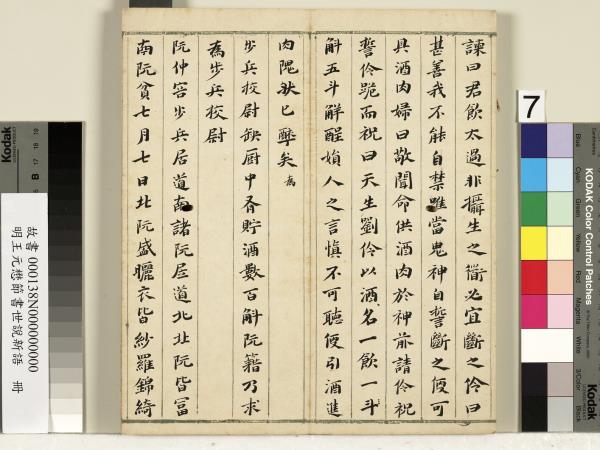 諫曰君飲太過非攝生之衜必宜斷之伶曰
甚善我不能自禁雖當鬼神自誓斷之便可
具酒肉婦曰敬聞命供酒肉於神前請伶祝
誓伶跪而祝曰天生劉伶以酒名一飲一斗
斛五斗解酲婦人之言慎不可聽便引酒進
肉隗狀已醉矣
為
步兵校尉缺厨中有貯酒數百斛阮籍乃求
為步兵校尉
阮仲容步兵居道南諸阮居道北北阮皆富
南阮貧七月七日北阮盛曬衣皆紗羅錦綺
7
Kodak
KODAK Color Control Patches
Blue
Cyan
Green
Yellow
Red
Magenta
White
3/Color
Black
Kodak
故書 000138N000000000
明王元懋節書世說新語 冊